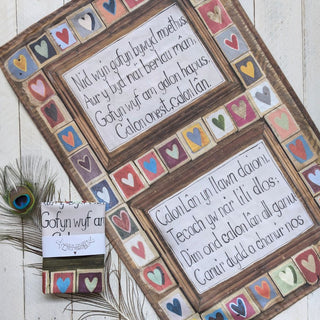 Nid wy'n gofyn bywyd moethus
Aur y byd na'i berlau mân,
Gofyn wyf am galon hapus,
Calon onest, calon lân.
Calon lân yn llawn daioni,
Tecach yw na'r lili dlos:
Dim ond calon lân all ganu
Canu'r dydd a chanu'r nos
Gofyn wyf am